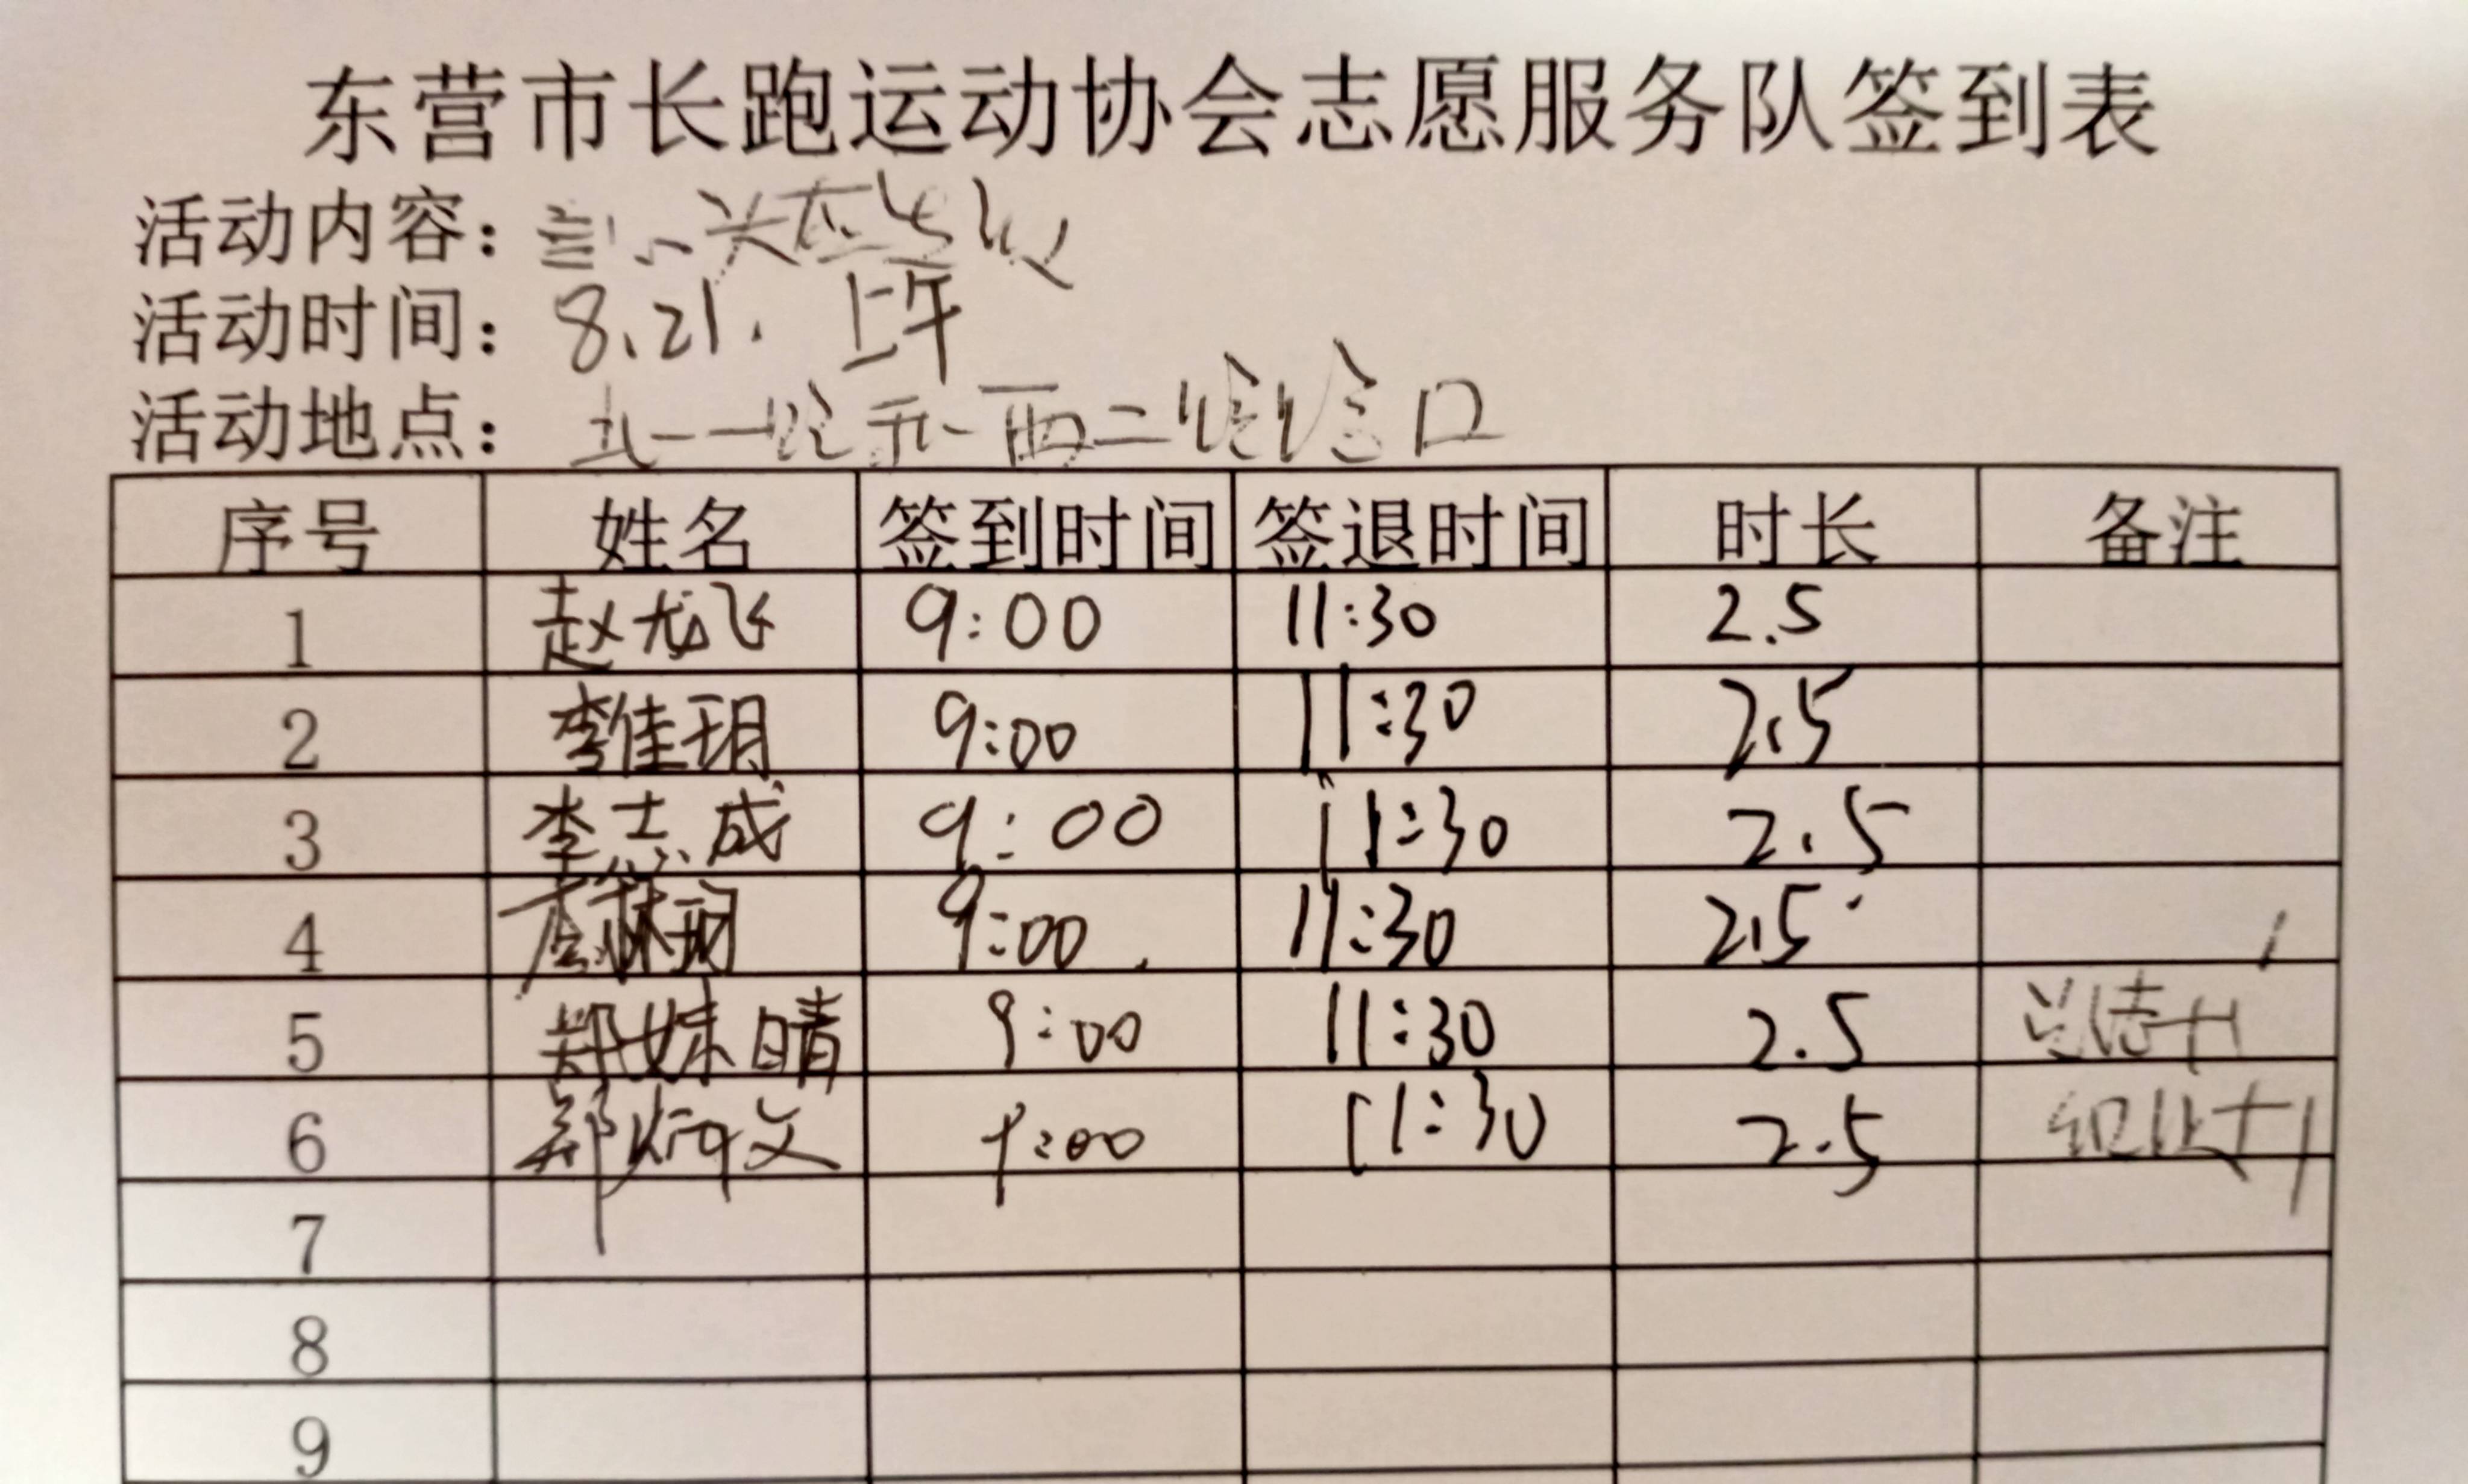 东营市长跑运动协会志愿服务队签到表
活动内容：
活动时间：8.21. 上午
活动地点：北一路和西二路路口
序号 姓名 签到时间 签退时间 时长 备注
1 赵龙飞 9:00 11:30 2.5
2 李佳玥 9:00 11:30 2.5
3 李志成 9:00 11:30 2.5
4 9:00 11:30 2.5
5 郑姝晴 9:00 11:30 2.5 总结+1
6 郑炳文 9:00 11:30 2.5 组织+1
7
8
9